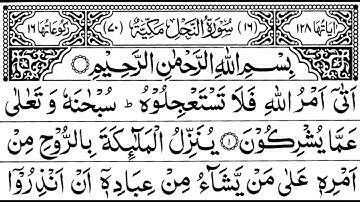 اٰيَاتُهَا ١٢٨ (١٦) سُوْرَةُ النَّحْلِ مَكِّيَّةٌ (٧٠) رُكُوْعَاتُهَا ١٦
بِسْمِ اللّٰهِ الرَّحْمٰنِ الرَّحِيْمِ
اَتٰۤى اَمْرُ اللّٰهِ فَلَا تَسْتَعْجِلُوْهُ ؕ سُبْحٰنَهٗ وَ تَعٰلٰى
عَمَّا يُشْرِكُوْنَ ۝۱ يُنَزِّلُ الْمَلٰٓئِكَةَ بِالرُّوْحِ مِنْ
اَمْرِهٖ عَلٰى مَنْ يَّشَآءُ مِنْ عِبَادِهٖۤ اَنْ اَنْذِرُوْۤا